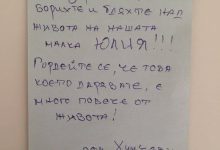 Борихте и бдяхте над
живота на нашата
малка Юлия!!!
Гордейте се, че това
което дарявате, е
много повече от
живота!